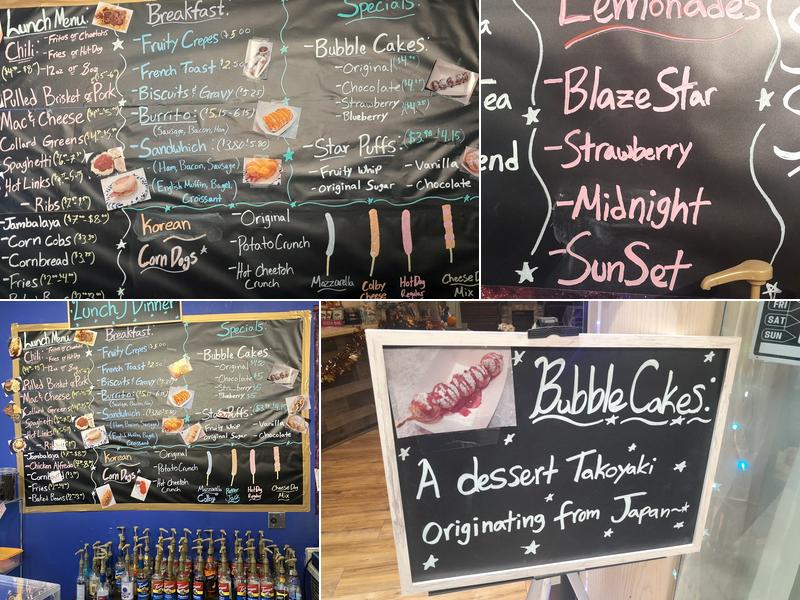 Lunch Menu:
Chili: - Fritos or Cheetohs
- Fries or Hot Dog
- 12oz or 8oz
Pulled Brisket or Pork
Mac & Cheese
Collard Greens
Spaghetti
Hot Links
- Ribs
- Jambalaya ($7.00-$8.00)
- Corn Cobs ($3.00)
- Cornbread
- Fries
Breakfast:
- Fruity Crepes $5.00
- French Toast $2.50
- Biscuits & Gravy ($5.25)
- Burrito: ($5.15-6.15)
(Sausage, Bacon, Ham)
- Sandwhich: ($3.80-5.80)
(Ham, Bacon, Sausage)
(English Muffin, Bagel,
Croissant
Specials:
- Bubble Cakes:
- Original
- Chocolate
- Strawberry
- Blueberry
- Star Puffs: ($3.90-$4.15)
- Fruity Whip
- Original Sugar
- Vanilla
- Chocolate
Korean
Corn Dogs
- Original
- Potato Crunch
- Hot Cheetoh
Crunch
Mozzarella
Colby
Cheese
Hot Dog
Regular
Cheese D
Mix
Lemonades
- Blaze Star
- Strawberry
- Midnight
- SunSet
ea
end
Lunch / Dinner
Lunch Menu:
Chili: - Fritos or Cheetohs
- Fries or Hot Dog
- 12oz or 8oz
Pulled Brisket or Pork
Mac & Cheese
Collard Greens
Spaghetti
Hot Links
- Jambalaya
- Chicken Alfredo
- Cornbread
- Fries
- Baked Beans
Breakfast:
- Fruity Crepes $5.00
- French Toast $2.50
- Biscuits & Gravy
- Burrito:
- Sandwhich:
(Ham, Bacon, Sausage)
(English Muffin, Bagel,
Croissant
Specials:
- Bubble Cakes:
- Original
- Chocolate $5
- Strawberry $5
- Blueberry $5
- Star Puffs:
- Fruity Whip
- Original Sugar
- Vanilla
- Chocolate
Korean
Corn Dogs
- Original
- Potato Crunch
- Hot Cheetoh
Crunch
Mozzarella
Colby
Pepper
Jack
Hot Dog
Regular
Cheese Dog
Mix
Bubble Cakes:
A dessert Takoyaki
Originating from Japan~
FRI
SAT
SUN